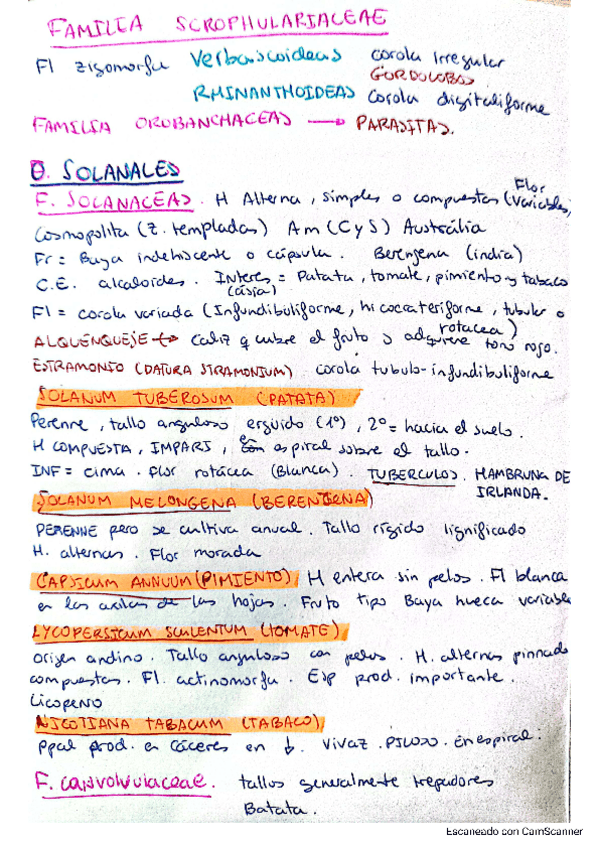 FAMILIA SCROPHULARIACEAE
Fl zigomorfa Verbascoideas corola irregular
GORDOLOBOS
RHINANTHOIDEAS corola digitaliforme
FAMILIA OROBANCHACEAS → PARASITAS.
O. SOLANALES
F. SOLANACEAS. H Alterna, simples o compuestas (Variables, Flor
Cosmopolita (z. templadas) Am (C y S) Austrália
Fr = Baya indehiscente o cápsula. Berenjena (india)
C.E. alcaloides. Interes = Patata, tomate, pimiento y tabaco
(asia)
Fl = corola variada (Infundibuliforme, hipocrateriforme, tubular o
rotacea)
ALQUENQUEJE → caliz q cubre el fruto y adquiere tono rojo.
ESTRAMONIO (DATURA STRAMONIUM) corola tubulo-infundibuliforme
SOLANUM TUBEROSUM (PATATA)
Perenne, tallo anguloso erguido (1º), 2º = hacia el suelo.
H COMPUESTA, IMPARI, en espiral sobre el tallo.
INF = cima. flor rotácea (Blanca). TUBERCULOS. HAMBRUNA DE
IRLANDA.
SOLANUM MELONGENA (BERENJENA)
PERENNE pero se cultiva anual. Tallo rígido lignificado
H. alternas. Flor morada
CAPSICUM ANNUUM (PIMIENTO) H entera sin pelos. Fl blanca
en las axilas de las hojas. Fruto tipo Baya hueca variable
LYCOPERSICUM SCULENTUM (TOMATE)
origen andino. Tallo anguloso con pelos. H. alternas pinnado
compuestas. Fl. actinomorfa. Esp prod. importante.
Licopeno
NICOTIANA TABACUM (TABACO)
Ppal prod. en Cáceres en ↓. Vivaz. PILOSO. En espiral.
F. convolvulaceae. tallos generalmente trepadores
Batata.
Escaneado con CamScanner